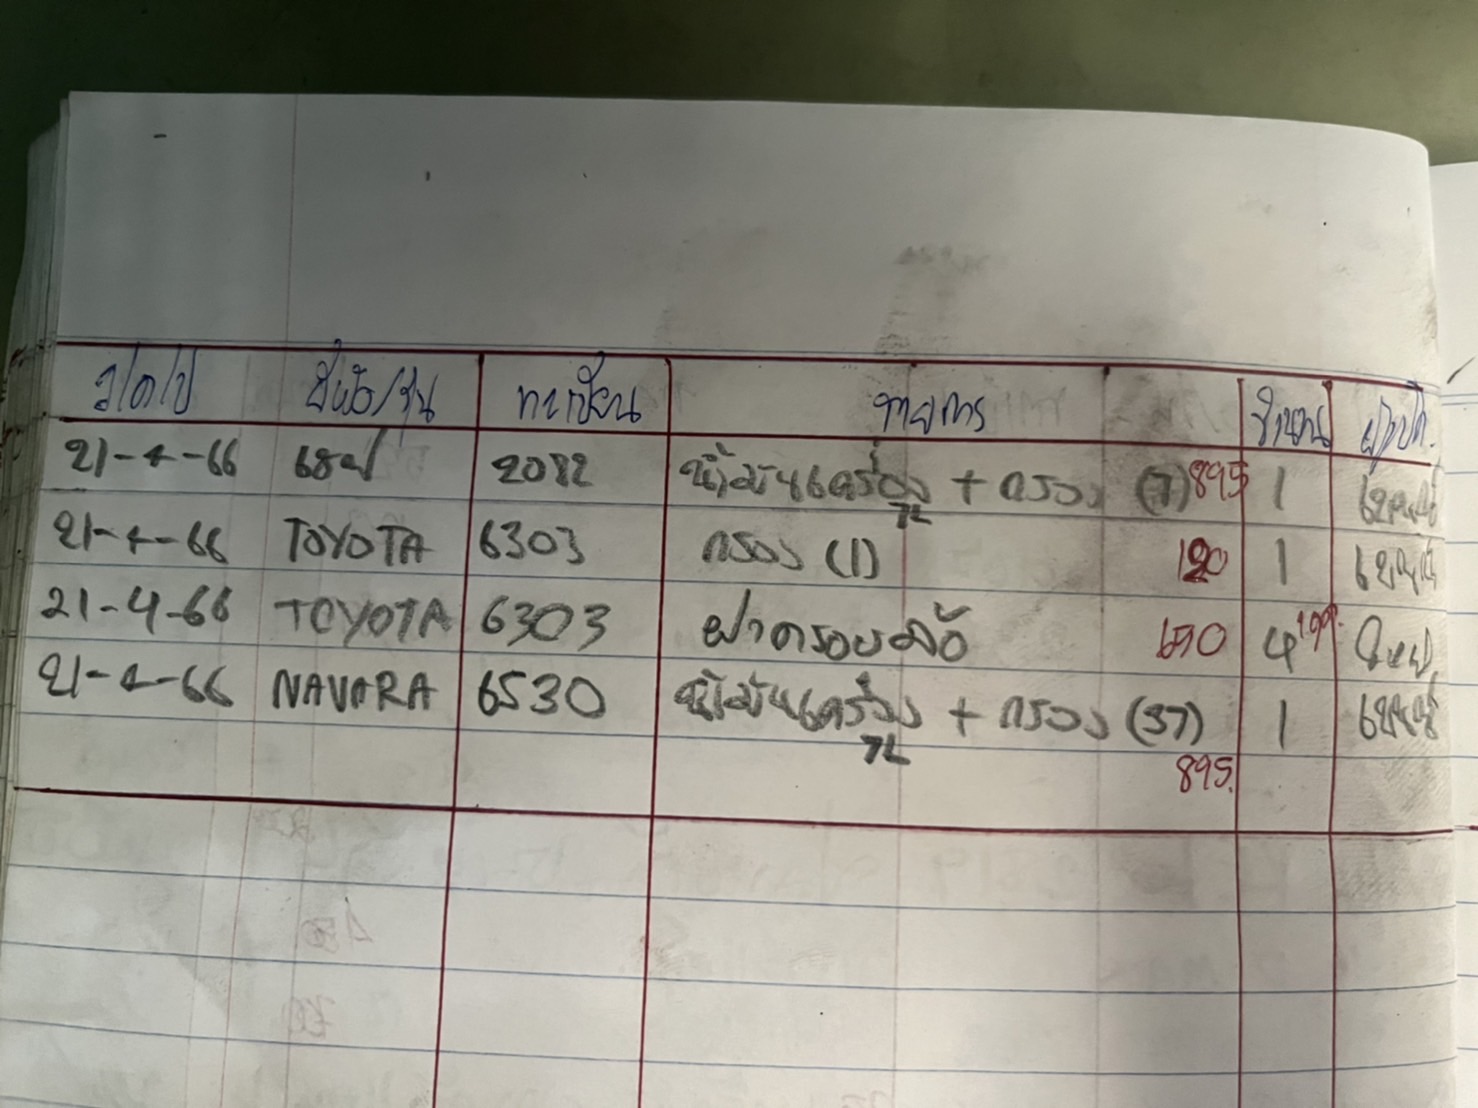 ว/ด/ป ยี่ห้อ/รุ่น ทะเบียน รายการ จำนวน ผู้เบิก
21-4-66 2082 น้ำมันเครื่อง + กรอง (7) 895 1
7L
21-4-66 TOYOTA 6303 กรอง (1) 120 1
21-4-66 TOYOTA 6303 ฝาครอบล้อ 690 4
21-4-66 NAVARA 6530 น้ำมันเครื่อง + กรอง (37) 1
7L
895.